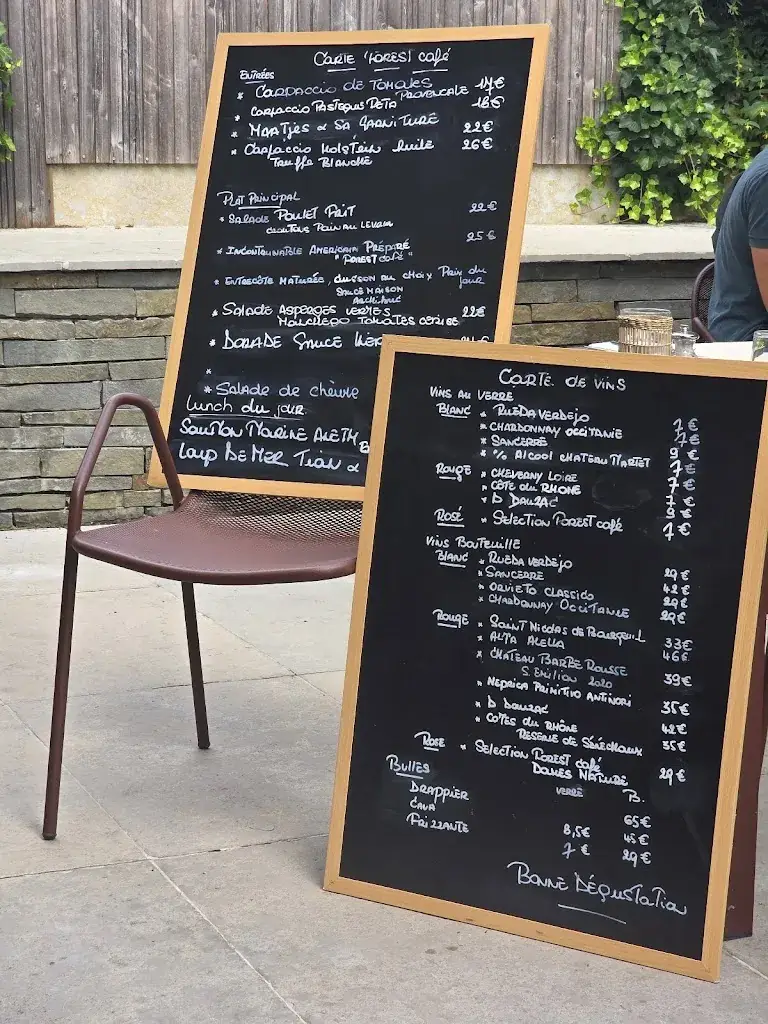 CARTE FOREST café
ENTRÉES
* CARPACCIO DE TOMATES 17€
PROVENCALE
* CARPACCIO PASTEQUE FETA 18€
* MAATJES & SA GARNITURE 22€
* CARPACCIO HOLSTEIN huile 26€
TRUFFE BLANCHE
PLAT PRINCIPAL
* SALADE POULET FRIT 22€
CROUTONS PAIN AU LEVAIN
* INCONTOURNABLE AMERICAIN PRÉPARÉ 25€
"FOREST café"
* ENTRECÔTE MATURÉE, CUISSON AU CHOIX PRIX DU
jour
SAUCE MAISON
* SALADE ASPERGES VERTES 22€
MANCHEGO TOMATES CERISE
* DORADE SAUCE
*
* SALADE de chèvre
LUNCH du jour
SAUMON MARINÉ ANETH
LOUP DE MER TIAN &
CARTE DE VINS
VINS AU VERRE
BLANC * RUEDA VERDEJO 7€
* CHARDONNAY OCCITANIE 7€
* SANCERRE 9€
* % ALCOOL CHATEAU MARTET 7€
ROUGE * CHEVERNY LOIRE 7€
* CÔTE DU RHONE 7€
* D DAUZAC 9€
ROSÉ * SELECTION FOREST café 7€
VINS BOUTEUILLE
BLANC * RUEDA VERDEJO 29€
* SANCERRE 42€
* ORVIETO CLASSICO 29€
* CHARDONNAY OCCITANIE 29€
ROUGE * SAINT NICOLAS DE BOURGUEIL 33€
* ALTA ALELLA 46€
* CHATEAU BARBE ROUSSE 39€
S. EMILION 2020
* NEPRICA PRIMITIVO ANTINORI 35€
* D DAUZAC 42€
* COTES DU RHÔNE 35€
RESERVE DE SÉNÉCHAUX
ROSE * SELECTION FOREST café 29€
DAMES NATURE
BULLES VERRE B.
DRAPPIER 65€
CAVA 8,5€ 45€
FRIZZANTE 7€ 29€
BONNE DÉGUSTATION